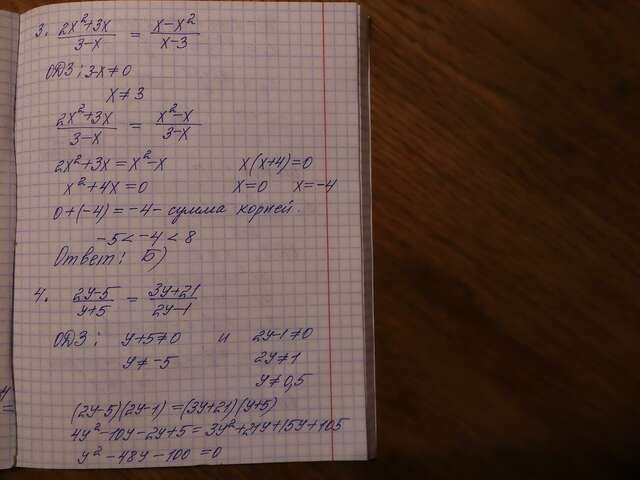 3. (2x²+3x)/(3-x) = (x-x²)/(x-3)
ОДЗ: 3-x≠0
x≠3
(2x²+3x)/(3-x) = (x²-x)/(3-x)
2x²+3x = x²-x x(x+4)=0
x²+4x=0 x=0 x=-4
0+(-4)=-4- сумма корней.
-5<-4<8
Ответ: Б)
4. (2y-5)/(y+5) = (3y+21)/(2y-1)
ОДЗ: y+5≠0 и 2y-1≠0
y≠-5 2y≠1
y≠0,5
(2y-5)(2y-1)=(3y+21)(y+5)
4y²-10y-2y+5=3y²+21y+15y+105
y²-48y-100=0